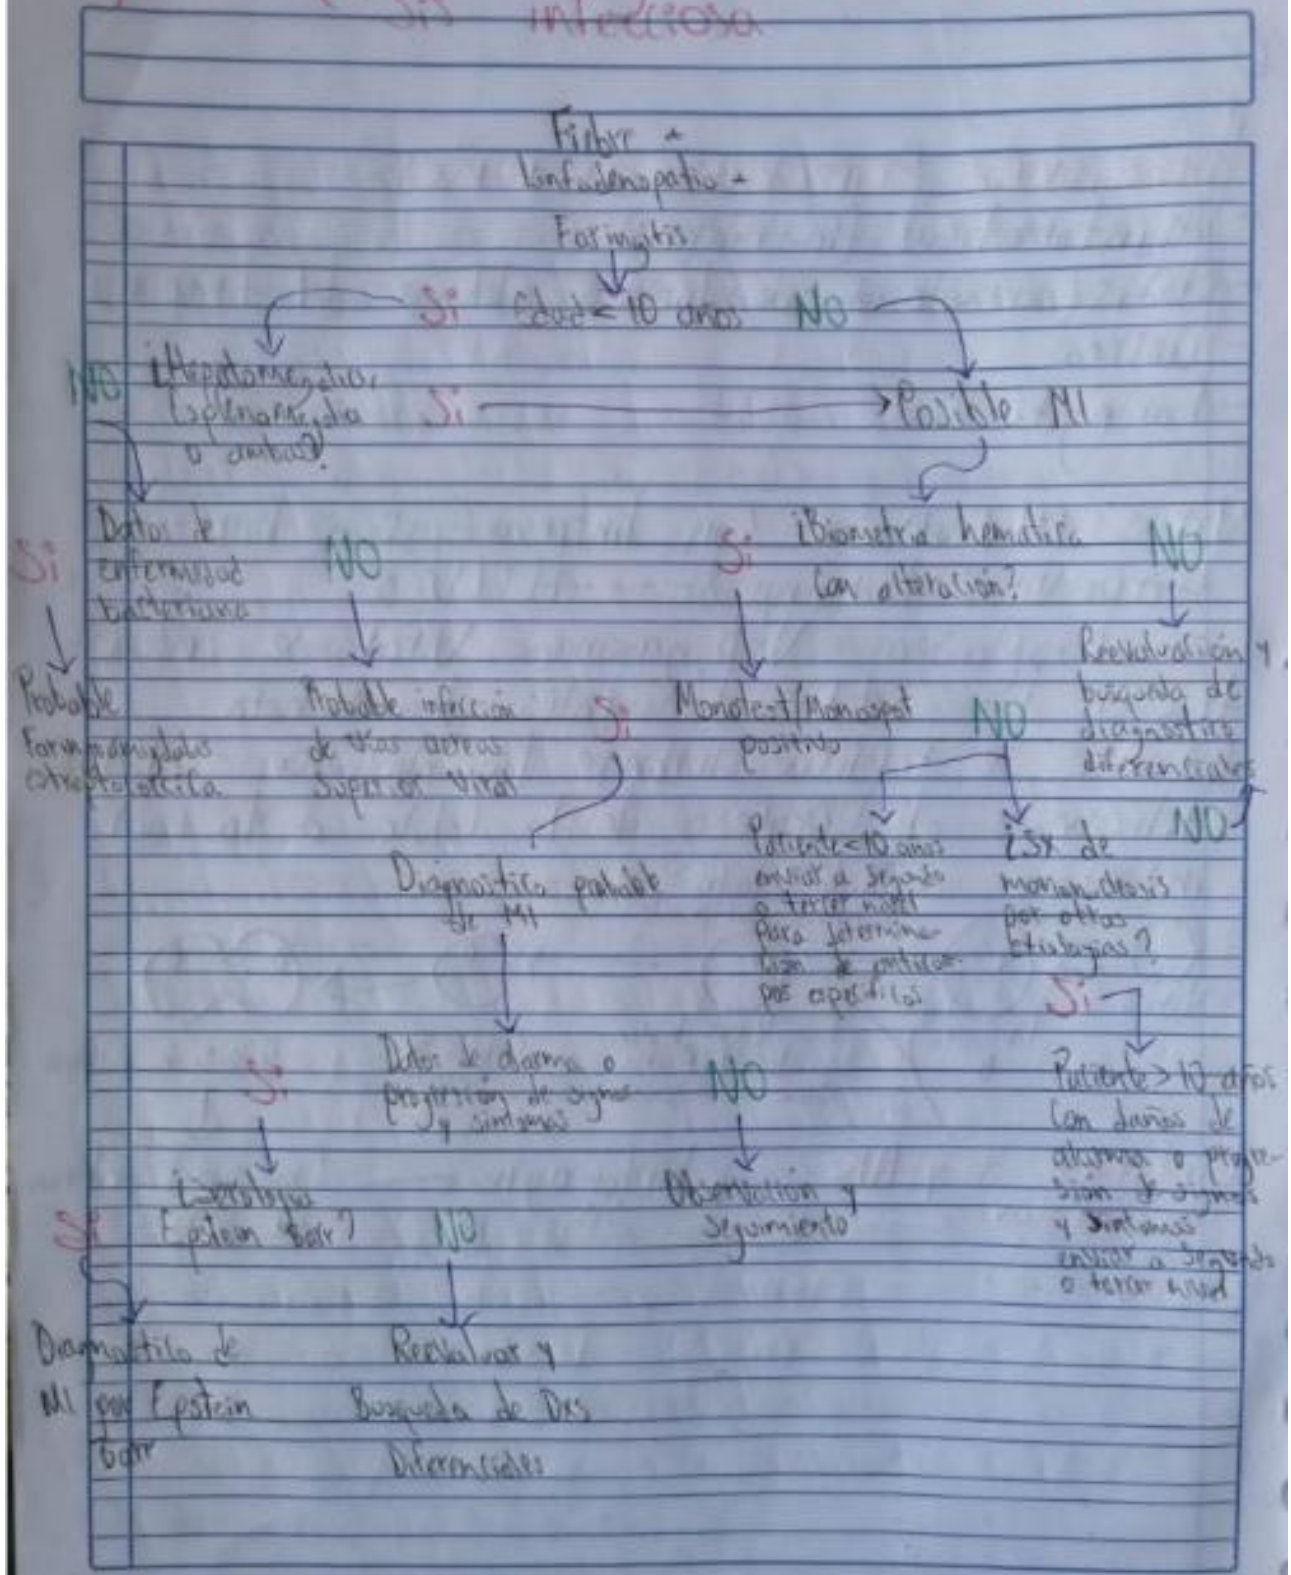 infecciosa
Fiebre +
Linfadenopatia +
Faringitis
Si Edad < 10 años NO
NO ¿Hepatomegalia,
Esplenomegalia Si Posible MI
o ambas?
Datos de
Si enfermedad NO
bacteriana
Si ¿Biometria hematica NO
con alteración?
Probable
estreptococcica
Probable infección
de vias aereas
Superior Viral
Si Monotest/Monospot NO
positivo
Reevaluación y
busqueda de
diagnostico
diferenciales
Diagnostico probable
de MI
Paciente < 10 años
enviar a segundo
o tercer nivel
para determina-
ción de anticuer-
pos especificos
¿Sx de NO
mononucleosis
por otras
Etiologias?
Si
Datos de alarma o
Si progresión de signos NO
y sintomas
Paciente > 10 años
con daños de
alarma o progre-
sión de signos
y sintomas
enviar a segundo
o tercer nivel
¿Serologia
Si Epstein barr? NO
Observación y
seguimiento
Diagnostico de
MI por Epstein
barr
Reevaluar y
Busqueda de Dxs
Diferenciales